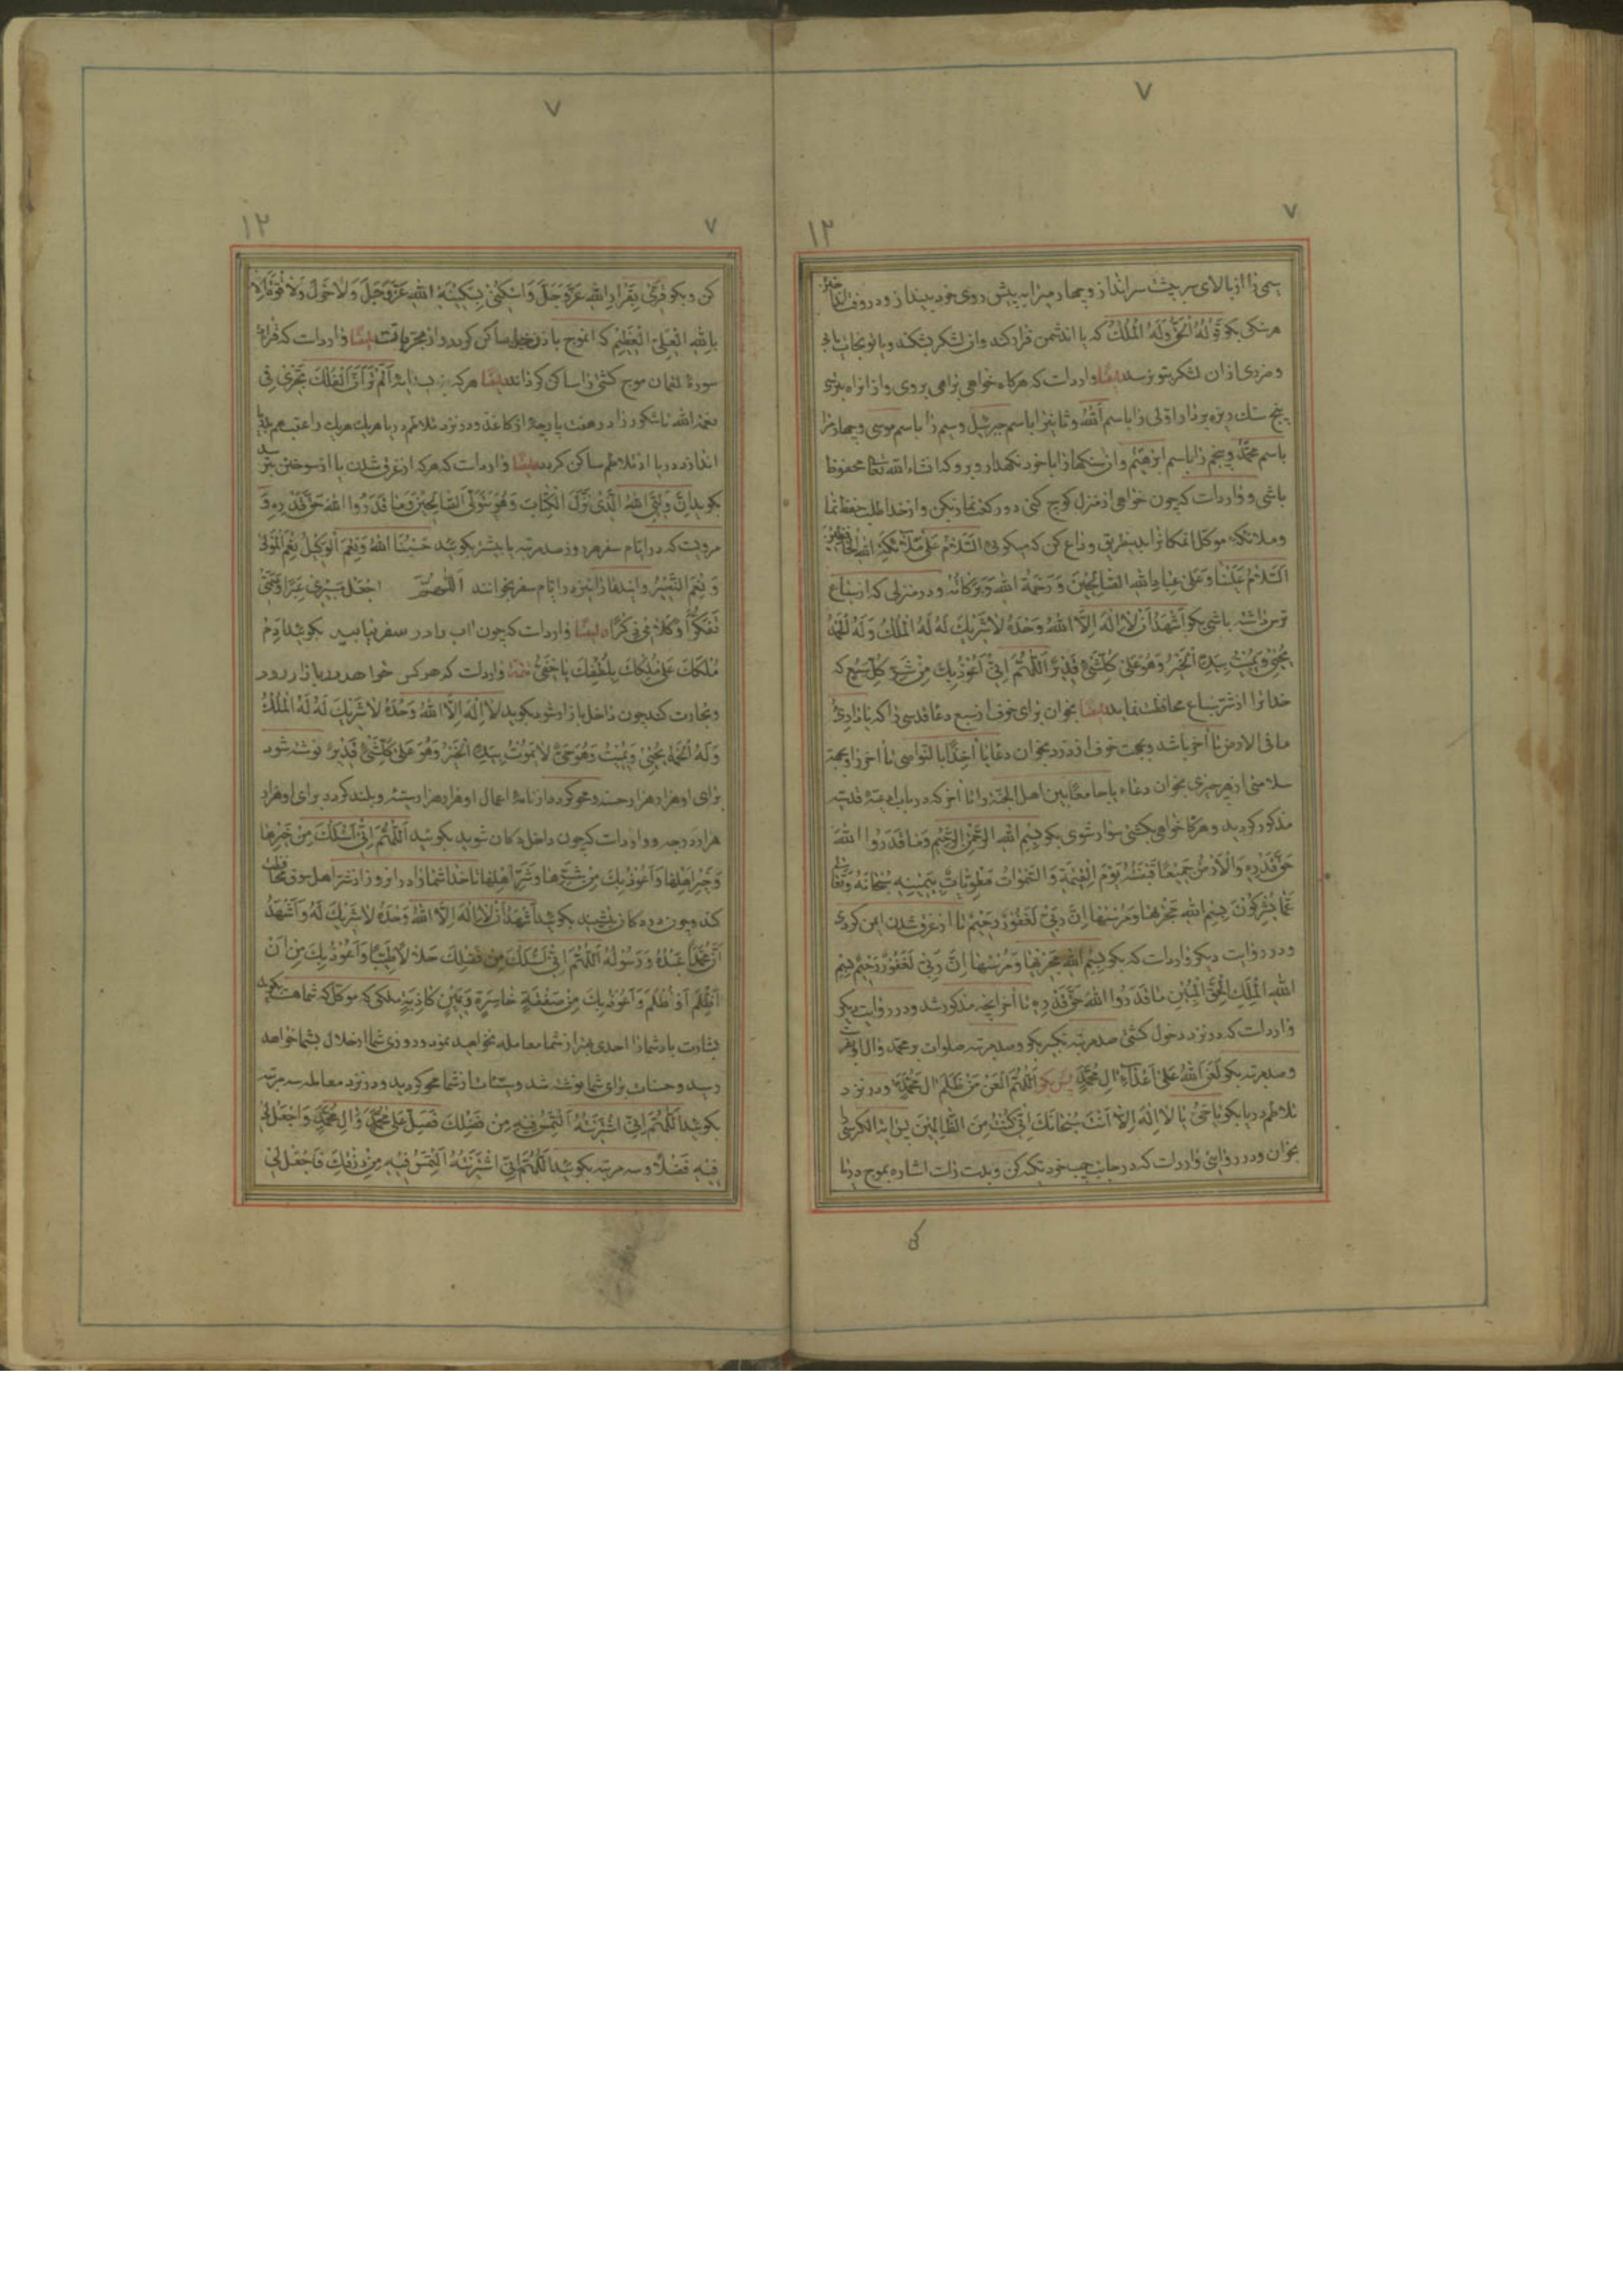 ۷
۷
۱۲
سی را از بالای سر پشت سر انداز و چهارمیرا به پیش روی خود بینداز و در وقت
هر سنگی بگو قَوْلُهُ الْحَقُّ وَلَهُ الْمُلْكُ که یا آن دشمن فرار کند و آن لشکر بشکند و یا تو نجات یابی
و مردی از آن لشکر بتو نرسد ایضًا وارد است که هرگاه خواهی براهی بروی و از آن راه بترسی
پنج سنك ریزه بردار اولی را باسم الله و ثانیرا باسم جبرئیل و سیم را باسم موسی و چهارمرا
باسم محمّد و پنجم را باسم ابراهیم و آن سنگها را با خود نگهدار و برو که انشاء الله تعالی محفوظ
باشی و وارد است که چون خواهی از منزل کوچ کنی دو رکعت نماز بکن و از خدا طلب حفظ نما
و ملائکه موکل آنمکانرا بدینطریق وداع کن که بگوئی اَلسَّلامُ عَلیٰ مَلائِكَةِ اللهِ الْحافِظینَ
اَلسَّلامُ عَلَیْنا وَعَلیٰ عِبادِ اللهِ الصّالِحینَ وَرَحْمَةُ اللهِ وَبَرَکاتُهُ و در منزلی که از سباع
ترس داشته باشی بگو اَشْهَدُ اَنْ لا اِلٰهَ اِلَّا اللهُ وَحْدَهُ لا شَریكَ لَهُ لَهُ الْمُلْكُ وَلَهُ الْحَمْدُ
یُحْیی وَیُمیتُ بِیَدِهِ الْخَیْرُ وَهُوَ عَلیٰ کُلِّ شَیْءٍ قَدیرٌ اَللّٰهُمَّ اِنّی اَعُوذُ بِكَ مِنْ شَرِّ کُلِّ سَبُعٍ که
خدا ترا از شرّ سباع محافظت نماید ایضًا بخوان برای خوف از سبع دعا قدسی را که یا ذاریءُ
ما فی الارض تا آخر باشد و بجهت خوف از دزد بخوان دعا یا اٰخِذًا بالنواصی تا آخر را و بجهة
سلامتی از هر چیزی بخوان دعاء یا جامعًا بین اهل الجنّة را تا آخر که در باب ادعیهٔ قدسیّه
مذکور کردید و هرگاه خواهی بکشتی سوار شوی بگو بِسْمِ اللهِ الرَّحْمٰنِ الرَّحیمِ وَما قَدَرُوا اللهَ
حَقَّ قَدْرِهِ وَالْاَرْضُ جَمیعًا قَبْضَتُهُ یَوْمَ الْقِیٰمَةِ وَالسَّمٰواتُ مَطْوِیّاتٌ بِیَمینِهِ سُبْحانَهُ وَتَعالیٰ
عَمّا یُشْرِکُونَ بِسْمِ اللهِ مَجْرٰیها وَمُرْسٰیها اِنَّ رَبّی لَغَفُورٌ رَحیمٌ تا از غرق شدن ایمن کردی
و در روایت دیگر وارد است که بگو بِسْمِ اللهِ مَجْرٰیها وَمُرْسٰیها اِنَّ رَبّی لَغَفُورٌ رَحیمٌ بِسْمِ
اللهِ الْمَلِكِ الْحَقِّ الْمُبینِ ما قَدَرُوا اللهَ حَقَّ قَدْرِهِ تا آخر آنچه مذکور شد و در روایت دیگر
وارد است که در نزد دخول کشتی صد مرتبه تکبیر بگو و صد مرتبه صلوات بر محمّد و آل او بفرست
و صد مرتبه بگو لَعَنَ اللهُ عَلیٰ اَعْداءِ اٰلِ مُحَمَّدٍ پس بگو اَللّٰهُمَّ الْعَنْ مَنْ ظَلَمَ اٰلَ مُحَمَّدٍ و در نزد
تلاطم دریا بگو یا حَیُّ یا لا اِلٰهَ اِلّا اَنْتَ سُبْحانَكَ اِنّی کُنْتُ مِنَ الظّالِمینَ پس آیة الکرسی را
بخوان و در روایتی وارد است که در جانب چپ خود تکیه کن و بدست راست اشاره بموج دریا
کن
۷
۷
۱۲
کن و بگو قِرّی بِقَرارِ اللهِ عَزَّ وَجَلَّ وَاسْکُنی بِسَکینَةِ اللهِ عَزَّ وَجَلَّ وَلا حَوْلَ وَلا قُوَّةَ اِلّا
بِاللهِ الْعَلِیِّ الْعَظیمِ که آنموج باذن خدا ساکن کردد و از مجرّباتست ایضًا وارد است که قرائة
سورهٔ لقمان موج کشتی را ساکن کرداند ایضًا هرکه آیهٔ اَلَمْ تَرَ اَنَّ الْفُلْكَ تَجْری فی
بنعمة الله تا شکور را در هفت پارچهٔ از کاغذ و در نزد تلاطم دریا هریك هریك را عقب هم
اندازد دریا از تلاطم ساکن کردد ایضًا وارد است که هرکه از غرق شدن یا از سوختن بترسد
بگوید اِنَّ وَلِیِّیَ اللهُ الَّذی نَزَّلَ الْکِتابَ وَهُوَ یَتَوَلَّی الصّالِحینَ وَما قَدَرُوا اللهَ حَقَّ قَدْرِهِ و
مرویست که در ایّام سفر هر روز صد مرتبه یا بیشتر بگوئید حَسْبُنَا اللهُ وَنِعْمَ الْوَکیلُ نِعْمَ الْمَوْلیٰ
وَنِعْمَ النَّصیرُ و ایندعا را نیز در ایّام سفر بخوانند اَللّٰهُمَّ اجْعَلْ مَسیری عِبَرًا وَصَمْتی
تَفَکُّرًا وَکَلامی ذِکْرًا ایضًا وارد است که چون آب را در سفر نیابید بگوئید اَدِمْ
مُلْکَكَ عَلیٰ مُلْکِكَ بِلُطْفِكَ یا خَفِیُّ تتمّه وارد است که هرکس خواهد در بازار رود
و تجارت کند چون داخل بازار شود بگوید لا اِلٰهَ اِلَّا اللهُ وَحْدَهُ لا شَریكَ لَهُ لَهُ الْمُلْكُ
وَلَهُ الْحَمْدُ یُحْیی وَیُمیتُ وَهُوَ حَیٌّ لا یَمُوتُ بِیَدِهِ الْخَیْرُ وَهُوَ عَلیٰ کُلِّ شَیْءٍ قَدیرٌ نوشته شود
برای او هزار هزار حسنه و محو کردد از نامهٔ اعمال او هزار هزار سیّئه و بلند کردد برای او هزار
هزار درجه و وارد است که چون داخل دکان شوید بگوئید اَللّٰهُمَّ اِنّی اَسْئَلُكَ مِنْ خَیْرِها
وَخَیْرِ اَهْلِها وَاَعُوذُ بِكَ مِنْ شَرِّها وَشَرِّ اَهْلِها تا خدا شما را در آنروز از شرّ اهل سوق محافظت
کند و چون در دکان بنشینید بگوئید اَشْهَدُ اَنْ لا اِلٰهَ اِلَّا اللهُ وَحْدَهُ لا شَریكَ لَهُ وَاَشْهَدُ
اَنَّ مُحَمَّدًا عَبْدُهُ وَرَسُولُهُ اَللّٰهُمَّ اِنّی اَسْئَلُكَ مِنْ فَضْلِكَ حَلالًا طَیِّبًا وَاَعُوذُ بِكَ مِنْ اَنْ
اَظْلِمَ اَوْ اُظْلَمَ وَاَعُوذُ بِكَ مِنْ صَفْقَةٍ خاسِرَةٍ وَیَمینٍ کاذِبَةٍ ملکی که موکّل که شماهست بگوید
بشارت باد شما را احدی بهتر از شما معامله نخواهید نمود و روزی شما از حلال بشما خواهد
رسید و حسنات برای شما نوشته شد و سیّئات از شما محو کردید و در نزد معامله سه مرتبه
بگوئید اَللّٰهُمَّ اِنّی اشْتَرَیْتُهُ اَلْتَمِسُ فیهِ مِنْ فَضْلِكَ فَصَلِّ عَلیٰ مُحَمَّدٍ وَاٰلِ مُحَمَّدٍ وَاجْعَلْ لی
فیهِ فَضْلًا و سه مرتبه بگوئید اَللّٰهُمَّ اِنّی اشْتَرَیْتُهُ اَلْتَمِسُ فیهِ مِنْ رِزْقِكَ فَاجْعَلْ لی